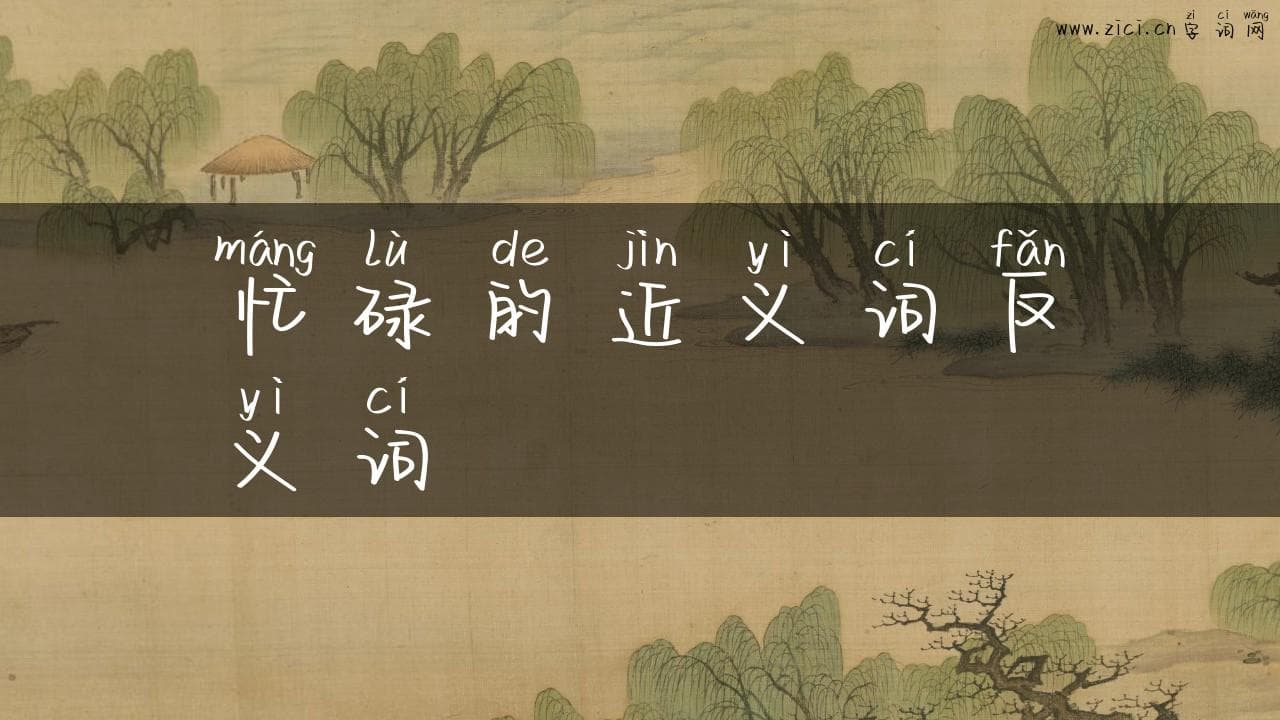 zì cí wǎng
www.zici.cn 字词网
máng lù de jìn yì cí fǎn
忙碌的近义词反
yì cí
义词